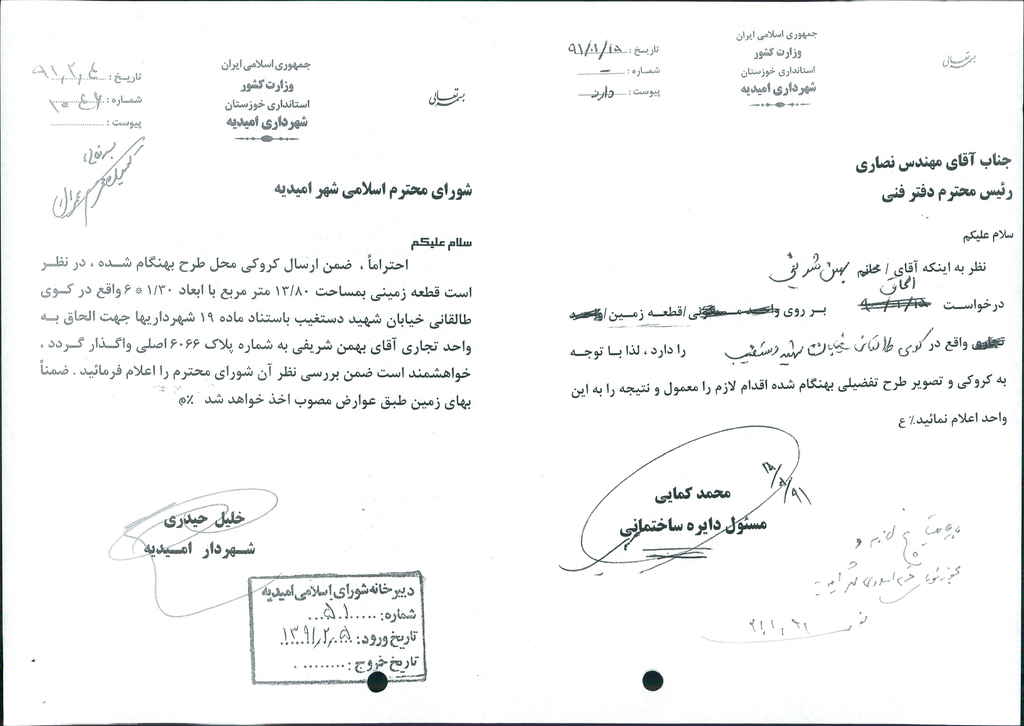 بسمه تعالی
جمهوری اسلامی ایران
وزارت کشور
استانداری خوزستان
شهرداری امیدیه
تاریخ : ۹۱/۰۱/۱۵
شماره : ــ
پیوست : دارد
جناب آقای مهندس نصاری
رئیس محترم دفتر فنی
سلام علیکم
نظر به اینکه آقای / خانم بهمن شریفی
درخواست الحاق بر روی قطعه زمین/
واقع در کوی طالقانی خیابان شهید دستغیب را دارد ، لذا با توجه
به کروکی و تصویر طرح تفضیلی بهنگام شده اقدام لازم را معمول و نتیجه را به این
واحد اعلام نمائید٪ ع
محمد کمایی
مسئول دایره ساختمانی
بسمه تعالی
جمهوری اسلامی ایران
وزارت کشور
استانداری خوزستان
شهرداری امیدیه
تاریخ : ۹۱,۲,۴
شماره :
پیوست :
شورای محترم اسلامی شهر امیدیه
سلام علیکم
احتراماً ، ضمن ارسال کروکی محل طرح بهنگام شده ، در نظر
است قطعه زمینی بمساحت ۱۳/۸۰ متر مربع با ابعاد ۱/۳۰ * ۶ واقع در کوی
طالقانی خیابان شهید دستغیب باستناد ماده ۱۹ شهرداریها جهت الحاق به
واحد تجاری آقای بهمن شریفی به شماره پلاک ۶۰۶۶ اصلی واگذار گردد ،
خواهشمند است ضمن بررسی نظر آن شورای محترم را اعلام فرمائید . ضمناً
بهای زمین طبق عوارض مصوب اخذ خواهد شد ٪
خلیل حیدری
شهردار امیدیه
دبیرخانه شورای اسلامی امیدیه
شماره: ۵۰۱
تاریخ ورود: ۱۳۹۱,۲,۵
تاریخ خروج :